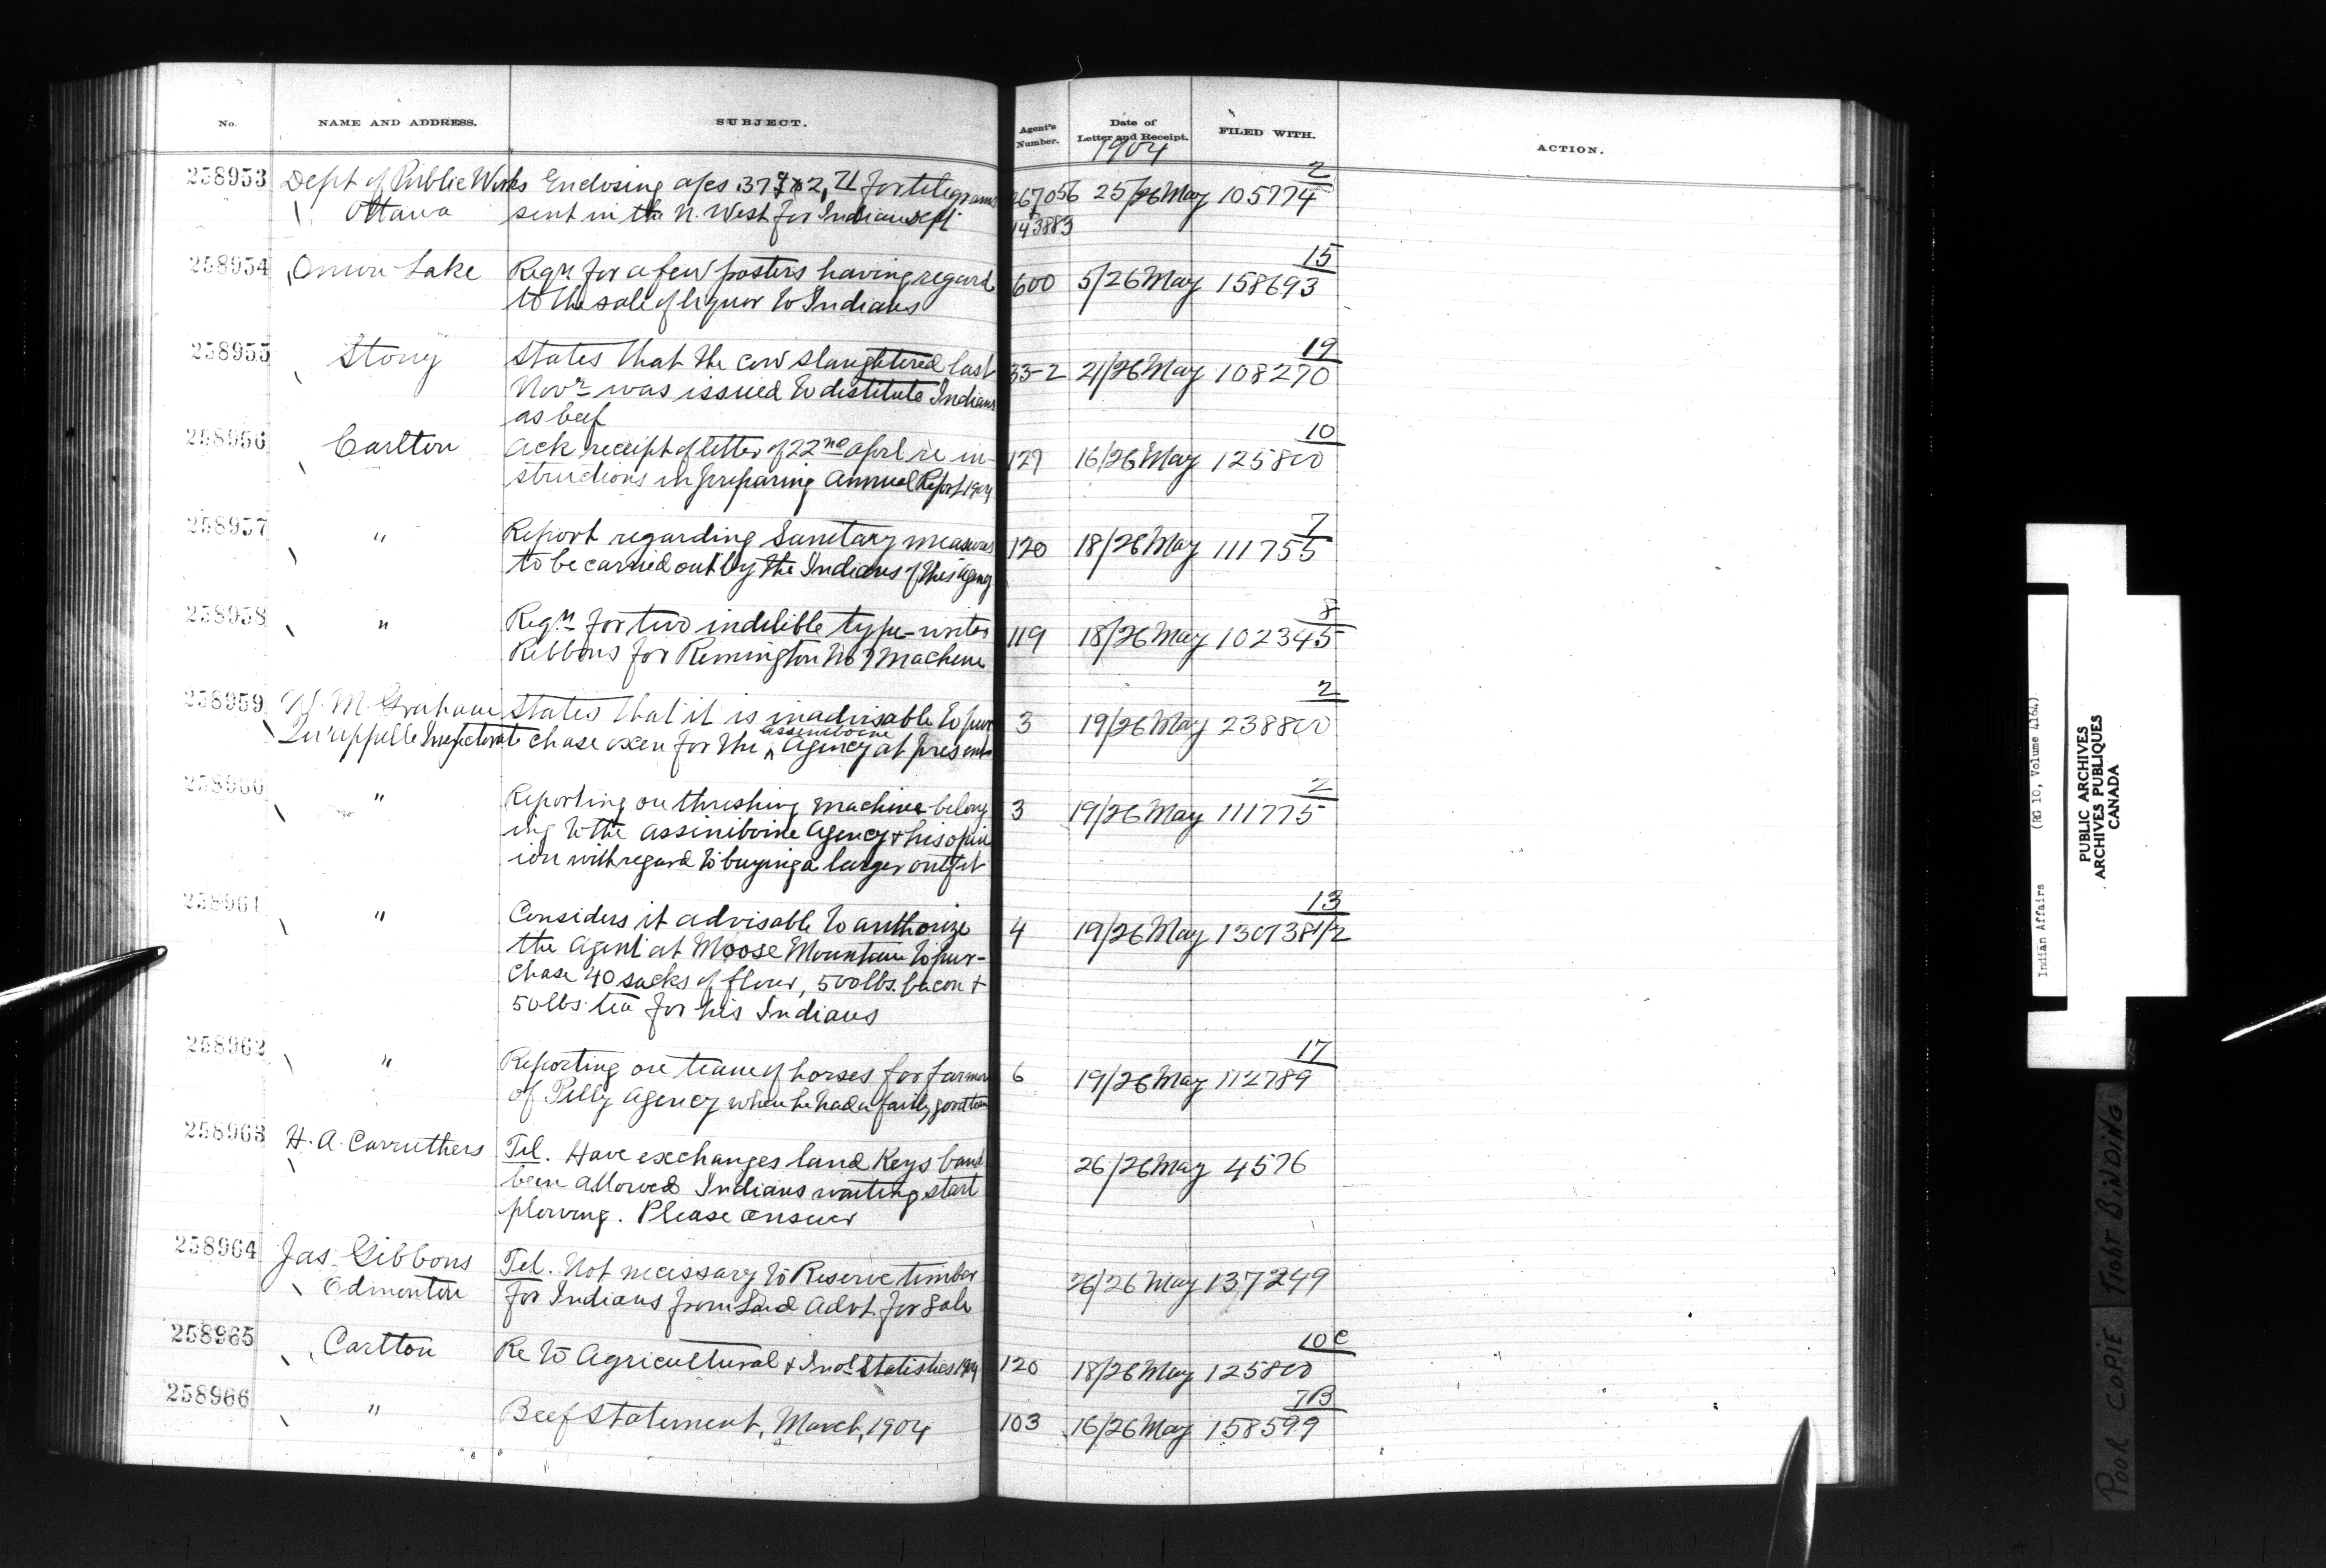 No. NAME AND ADDRESS. SUBJECT. Agent's Number. Date of Letter and Receipt. FILED WITH. ACTION.
1904
2
258953 Dept of Public Works Enclosing a/cs for telegrams 267056 25/26 May 105774
Ottawa sent in the N. West for Indian Dept. 143883
15
258954 Onion Lake Reqn for a few posters having regard 600 5/26 May 158693
to the sale of liquor to Indians
19
258955 Stony States that the cow slaughtered last 33-2 21/26 May 108270
Novr was issued to destitute Indians
as beef
10
258956 Carlton Ack receipt of letter of 22nd April re in- 127 16/26 May 125800
structions in preparing Annual Report 1904
7
258957 " Report regarding Sanitary measures 120 18/26 May 111755
to be carried out by the Indians of this Agency
8
258958 " Reqn for two indelible type-writer 119 18/26 May 102345
Ribbons for Remington No 7 Machine
2
258959 W. M. Graham States that it is inadvisable to pur 3 19/26 May 238800
Qu'appelle Inspectorate chase oxen for the Assiniboine Agency at present
2
258960 " Reporting on threshing machine belong 3 19/26 May 111775
ing to the Assiniboine Agency & his opin
ion with regard to buying a larger outfit
13
258961 " Considers it advisable to authorize 4 19/26 May 130738 1/2
the Agent at Moose Mountain to pur-
chase 40 sacks of flour, 500 lbs. bacon &
50 lbs. tea for his Indians
17
258962 " Reporting on team of horses for farmer 6 19/26 May 112789
of Pelly Agency when he had a fairly good team
258963 H. A. Carruthers Tel. Have exchanges land Keys band 26/26 May 4576
been allowed Indians waiting start
plowing. Please answer
258964 Jas. Gibbons Tel. Not necessary to Reserve timber 26/26 May 137249
Edmonton for Indians from Land Advt. for Sale
10C
258965 Carlton Re to Agricultural & Indl Statistics 1904 120 18/26 May 125800
7B
258966 " Beef Statement, March, 1904 103 16/26 May 158599
Indian Affairs (RG 10, Volume 4164)
PUBLIC ARCHIVES
ARCHIVES PUBLIQUES
CANADA
POOR COPIE TIGHT BINDING